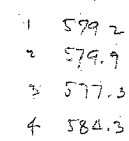 1 579.2
2 579.9
3 577.3
4 584.3